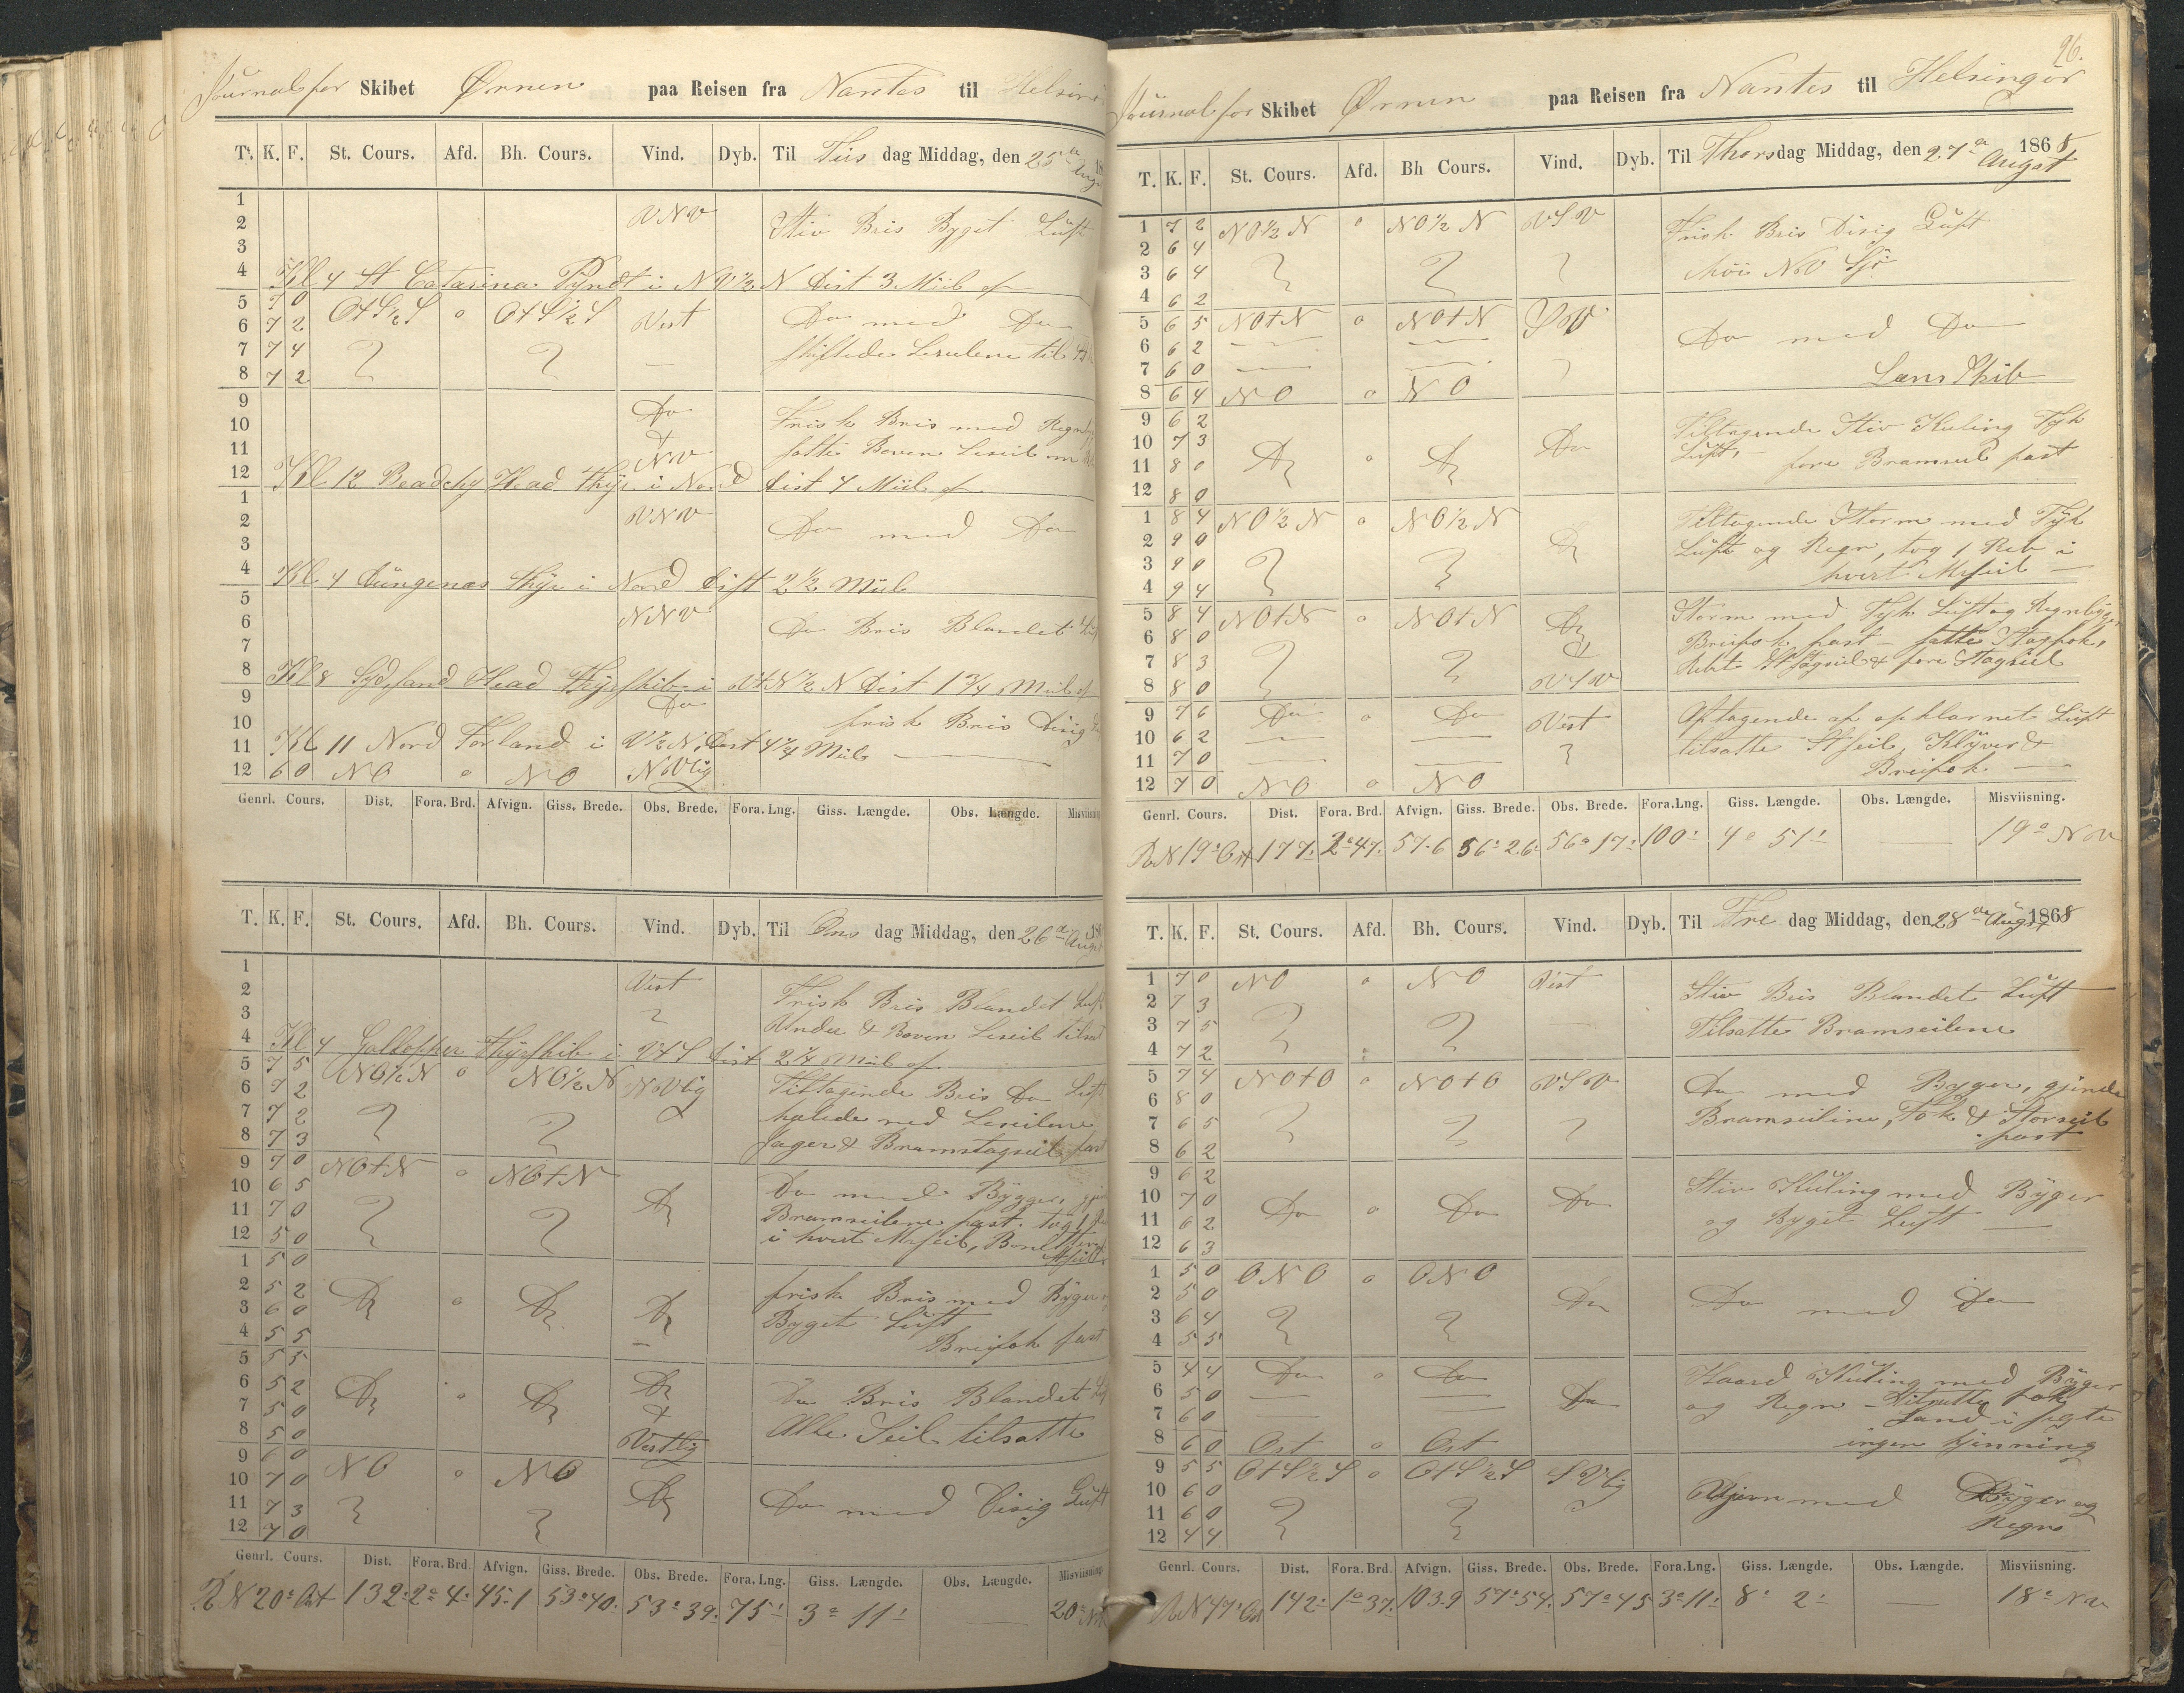 Journal for Skibet Ørnen paa Reisen fra Nantes til Helsin
Tt. K. F. St. Cours. Afd. Bh. Cours. Vind. Dyb. Til Tiis dag Middag, den 25de
1
2 VNV Stiv Bris Byget Luft
3
4 Kl 4 St Catarina Pÿndt i NV½N Dist 3 Miil af
5 7 0 OtS½S o OtS½S Vest Do med Do
6 7 2
7 7 4 skiftede Leseilene til
8 7 2
9 Do Frisk Bris med
10 &
11 NV satte Boven Leseil
12 Kl 12 Beachy Head Fhÿr i Nord Dist 4 Miil af
1 VNV
2 Do med Do
3
4 Kl 4 Düngenæs Fhÿr i Nord Dist 2½ Miil
5 NNV
6 Do Bris Blandet
7
8 Kl 8 Sydsand Head Fhÿrskib i VtN½N Dist 1¾ Miil af
9 Do
10 frisk Bris Disig
11 Kl 11 Nord Forland i V½N, Dist 4¼ Miil
12 6 0 NO o NO NVlig
Genrl. Cours. Dist. Fora. Brd. Afvign. Giss. Brede. Obs. Brede. Fora. Lng. Giss. Længde. Obs. Længde. Misviisning
T. K. F. St. Cours. Afd. Bh. Cours. Vind. Dyb. Til Ons dag Middag, den 26de
1 Vest
2 Frisk Bris Blandet Luft
3 Under & Boven Leseil
4 Kl 4 Gallopher Fhÿrskib i VtS Dist 2¼ Miil af
5 7 5 NO½N o NO½N NVlig Tiltagende Bris Do Luft
6 7 2
7 7 2 halede ned Leseilene
8 7 3 Jager & Bramstagseil fast
9 7 0 NOtN o NOtN Do Do med Bÿger,
10 6 5
11 7 0 Bramseilene fast. tog 1
12 5 0 i hvert Mrseil,
1 5 0
2 5 2 Do o Do Do frisk Bris med Bÿger
3 6 0 Byget Luft
4 5 5 Breifok fast
5 5 5
6 5 2 Do o Do Do Do Bris Blandet
7 5 0 &
8 5 0 Vestlig Alle Seil tilsatte
9 6 0 NO o NO Do
10 7 0
11 7 3 Do med Disig Luft
12 7 0
Genrl. Cours. Dist. Fora. Brd. Afvign. Giss. Brede. Obs. Brede. Fora. Lng. Giss. Længde. Obs. Længde. Misviisning.
RN 20° Ost 132' 2° 4' 45.1 53° 40' 53° 39' 75' 3° 11' — 20°
96.
Journal for Skibet Ørnen paa Reisen fra Nantes til Helsingør
T. K. F. St. Cours. Afd. Bh Cours. Vind. Dyb. Til Thorsdag Middag, den 27de Augst 1868
1 7 2 NO½N o NO½N VSV Frisk Bris Disig Luft
2 6 4
3 6 4 høi NV Sjø
4 6 2
5 6 5 NOtN o NOtN SV Do med Do
6 6 2
7 6 0 Læns Skib
8 6 4 NO o NO
9 6 2 Tiltagende Stiv Kuling Tyk
10 7 3 Do o Do Do Luft,
11 8 0 fore Bramseil fast
12 8 0
1 8 4 NO½N o NO½N Do Tiltagende Storm med Tÿk
2 9 0 Luft og Regn, tog 1 Reb i
3 9 0 hvert Mrseil —
4 9 4
5 8 4 NOtN o NOtN Do Storm med Tyk Luft og Regnbÿger
6 8 0 & Breifok fast — satte Stagfok,
7 8 3 VSV Stagseil & fore Stagseil
8 8 0
9 7 6 Do o Do Vest Aftagende af opklarnet Luft
10 6 2 tilsatte Stseil, Klÿver &
11 7 0 Breifok —
12 7 0 NO o NO
Genrl. Cours. Dist. Fora. Brd. Afvign. Giss. Brede. Obs. Brede. Fora.Lng. Giss. Længde. Obs. Længde. Misviisning.
RN 19° Ost 177' 2° 47' 57.6 56° 26' 56° 17' 100' 4° 51' — 19° NV
T. K. F. St. Cours. Afd. Bh. Cours. Vind. Dyb. Til Fre dag Middag, den 28de Augst 1868
1 7 0 NO o NO Vest Stiv Bris Blandet Luft
2 7 3
3 7 5 Tilsatte Bramseilene
4 7 2
5 7 4 NOtO o NOtO VSV Do med Bÿger, gjorde
6 8 0
7 6 5 Bramseilene, Fok & Storseil
8 6 2 fast
9 6 2 Stiv Küling med Bÿger
10 7 0 Do o Do Do
11 6 2 og Byget Luft —
12 6 3
1 5 0 ONO o ONO
2 5 0 Do Do med Do
3 6 4
4 5 5
5 4 4 Do o Do Haard Küling med Bÿger
6 5 0 Do og Regn — tilsatte Fok
7 6 0 Land i sigte
8 6 0 Ost o Ost ingen kjenning
9 5 5 OtS½S o OtS½S SVlig
10 6 0 med Bÿger og
11 6 0 Regn
12 4 4
Genrl. Cours. Dist. Fora. Brd. Afvign. Giss. Brede. Obs. Brede. Fora.Lng. Giss. Længde. Obs. Længde. Misviisning.
RN 47° Ost 142' 1° 37' 103.9 57° 54' 57° 45 3° 11' 8° 2' — 18° NV